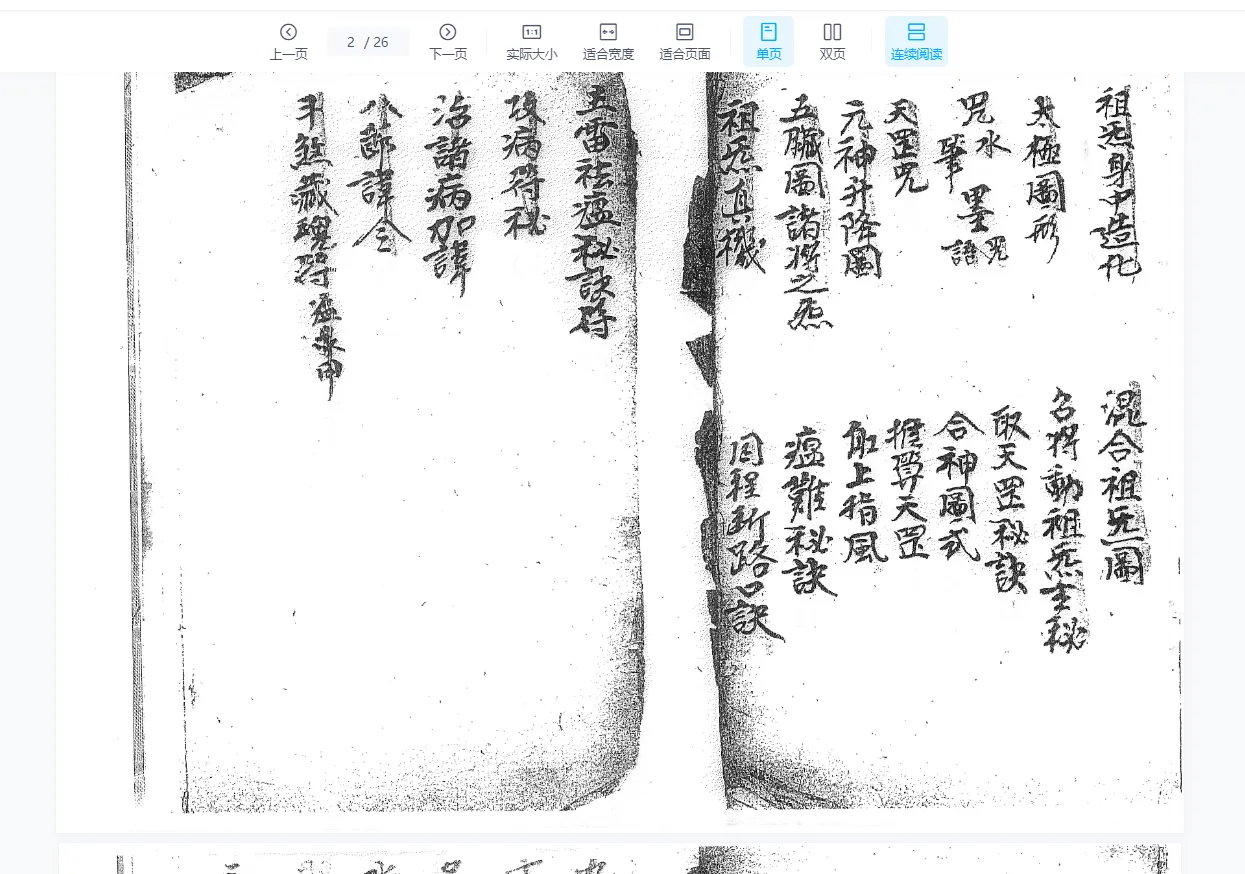 上一页
2 / 26
下一页
1:1
实际大小
适合宽度
适合页面
单页
双页
连续阅读
祖炁身中造化
混合祖炁圖
太極圖形
召將動祖炁主秘
咒水
筆墨咒語
取天罡秘訣
天罡咒
合神圖式
元神升降圖
推算天罡
五臟圖諸將之炁
缸上指風
祖炁真機
瘟難秘訣
同程断路口訣
五雷祛瘟秘訣符
攻病符秘
治諸病加諱
八部諱令
斗煞藏魂符